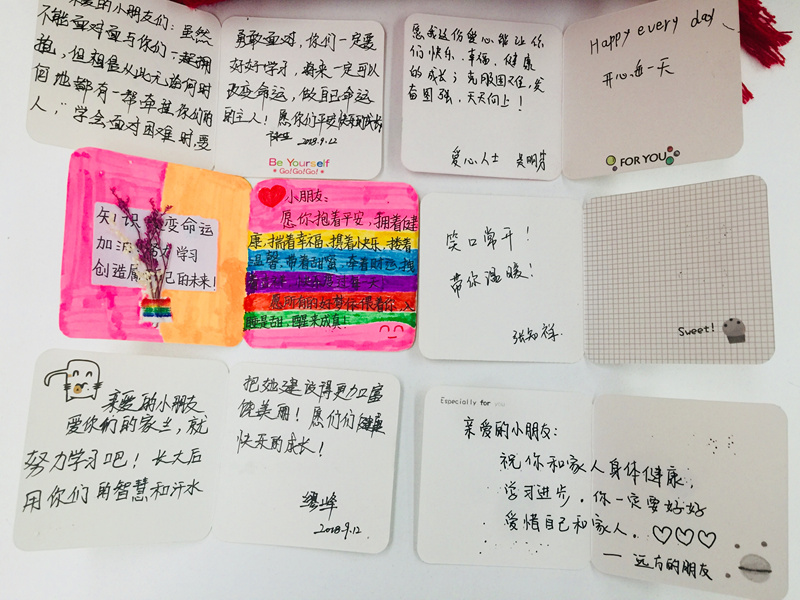 亲爱的小朋友们：虽然
不能面对面与你们一起拥
抱，但相信从此无论何时
何地都有一帮牵挂你们的
人，"学会面对困难时，要
勇敢面对，你们一定要
好好学习，将来一定可以
改变命运，做自己命运
的主人！愿你们平安快乐的成长
2018.9.12
Be Yourself
Go!Go!Go!
愿我这份爱心能让你
们快乐、幸福、健康
的成长；克服困难，发
奋图强，天天向上！
爱心人士
Happy every day
开心每一天
FOR YOU
知识 变命运
加油 努力学习
创造属 自己的未来！
小朋友：
愿你抱着平安，拥着健
康，揣着幸福，携着快乐，搂着
温馨，带着甜蜜，牵着财运，拽
着 快乐度过每一天！
愿所有的好梦依偎着你，入
睡是甜，醒来成真！
笑口常开！
带你温暖！
张知祥
Sweet!
亲爱的小朋友
爱你们的家乡，就
努力学习吧！长大后
用你们的智慧和汗水
把她建设得更加富
饶美丽！愿你们健康
快乐的成长！
缪峰
2018.9.12
Especially for you
亲爱的小朋友：
祝你和家人身体健康，
学习进步，你一定要好好
爱惜自己和家人。♡♡♡
— 远方的朋友